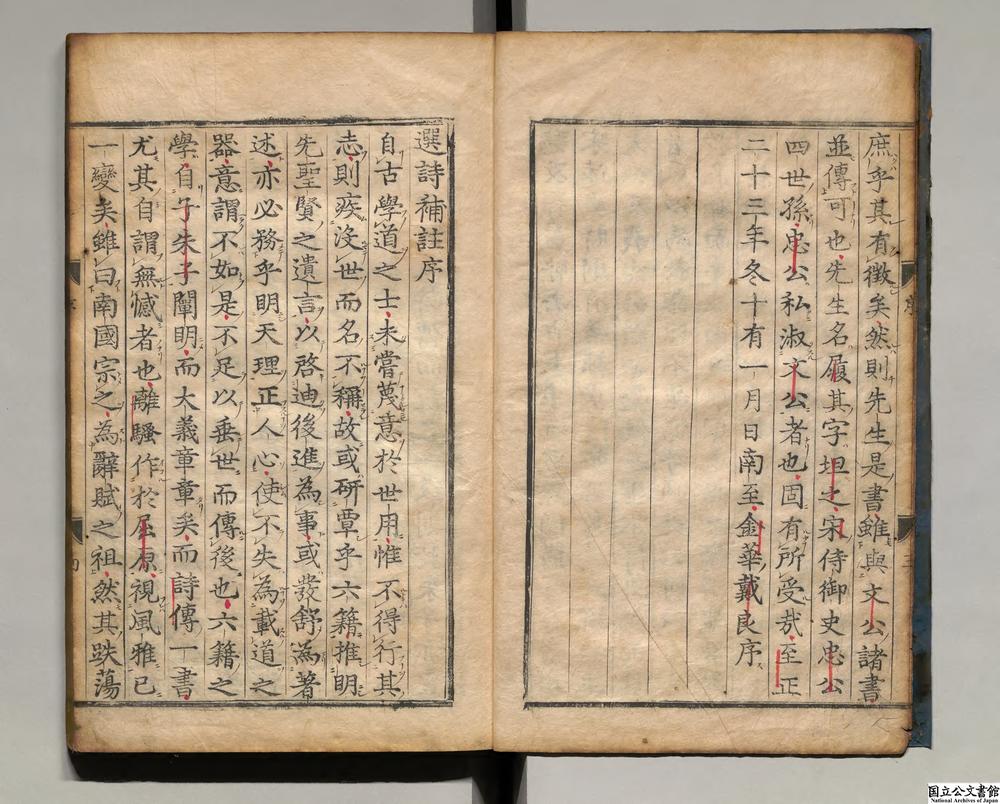 庶乎其有徵矣然則先生是書雖與文公諸書
並傳可也先生名履其字坦之宋侍御史忠公
四世孫忠公私淑文公者也固有所受哉至正
二十三年冬十有一月日南至金華戴良序
序
三
選詩補註序
自古學道之士未嘗蔑意於世用惟不得行其
志則疾沒世而名不稱故或研覃乎六籍推明
先聖賢之遺言以啓迪後進為事或發舒為著
述亦必務乎明天理正人心使不失為載道之
器意謂不如是不足以垂世而傳後也六籍之
學自子朱子闡明而大義章章矣而詩傳一書
尤其自謂無憾者也離騷作於屈原視風雅已
一變矣雖曰南國宗之為辭賦之祖然其跌蕩
序
四
国立公文書館
National Archives of Japan